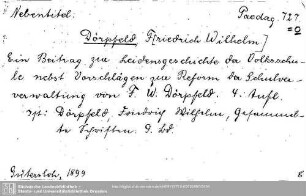 Nebentitel: Paedag. 727
= 9
Dörpfeld, [Friedrich Wilhelm]
Ein Beitrag zur Leidensgeschichte der Volksschu-
le nebst Vorschlägen zur Reform der Schulver-
verwaltung von F. W. Dörpfeld. 4. Aufl.
Dörpfeld, Friedrich Wilhelm, Gesammel-
te Schriften. 9. Bd.
Gütersloh, 1899